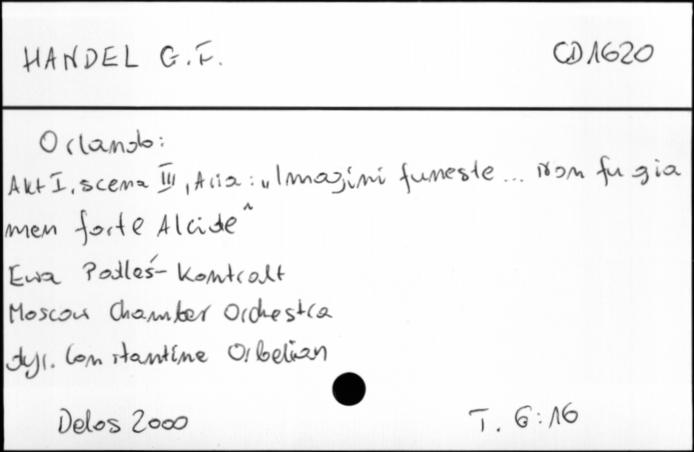 HANDEL G.F. CD 1620
Orlando:
Akt I, scena III, Aria: „Imagini funeste... Non fu gia
men forte Alcide"
Ewa Podleś - kontralt
Moscow Chamber Orchestra
dyr. Constantine Orbelian
Delos 2000 T. 6:16